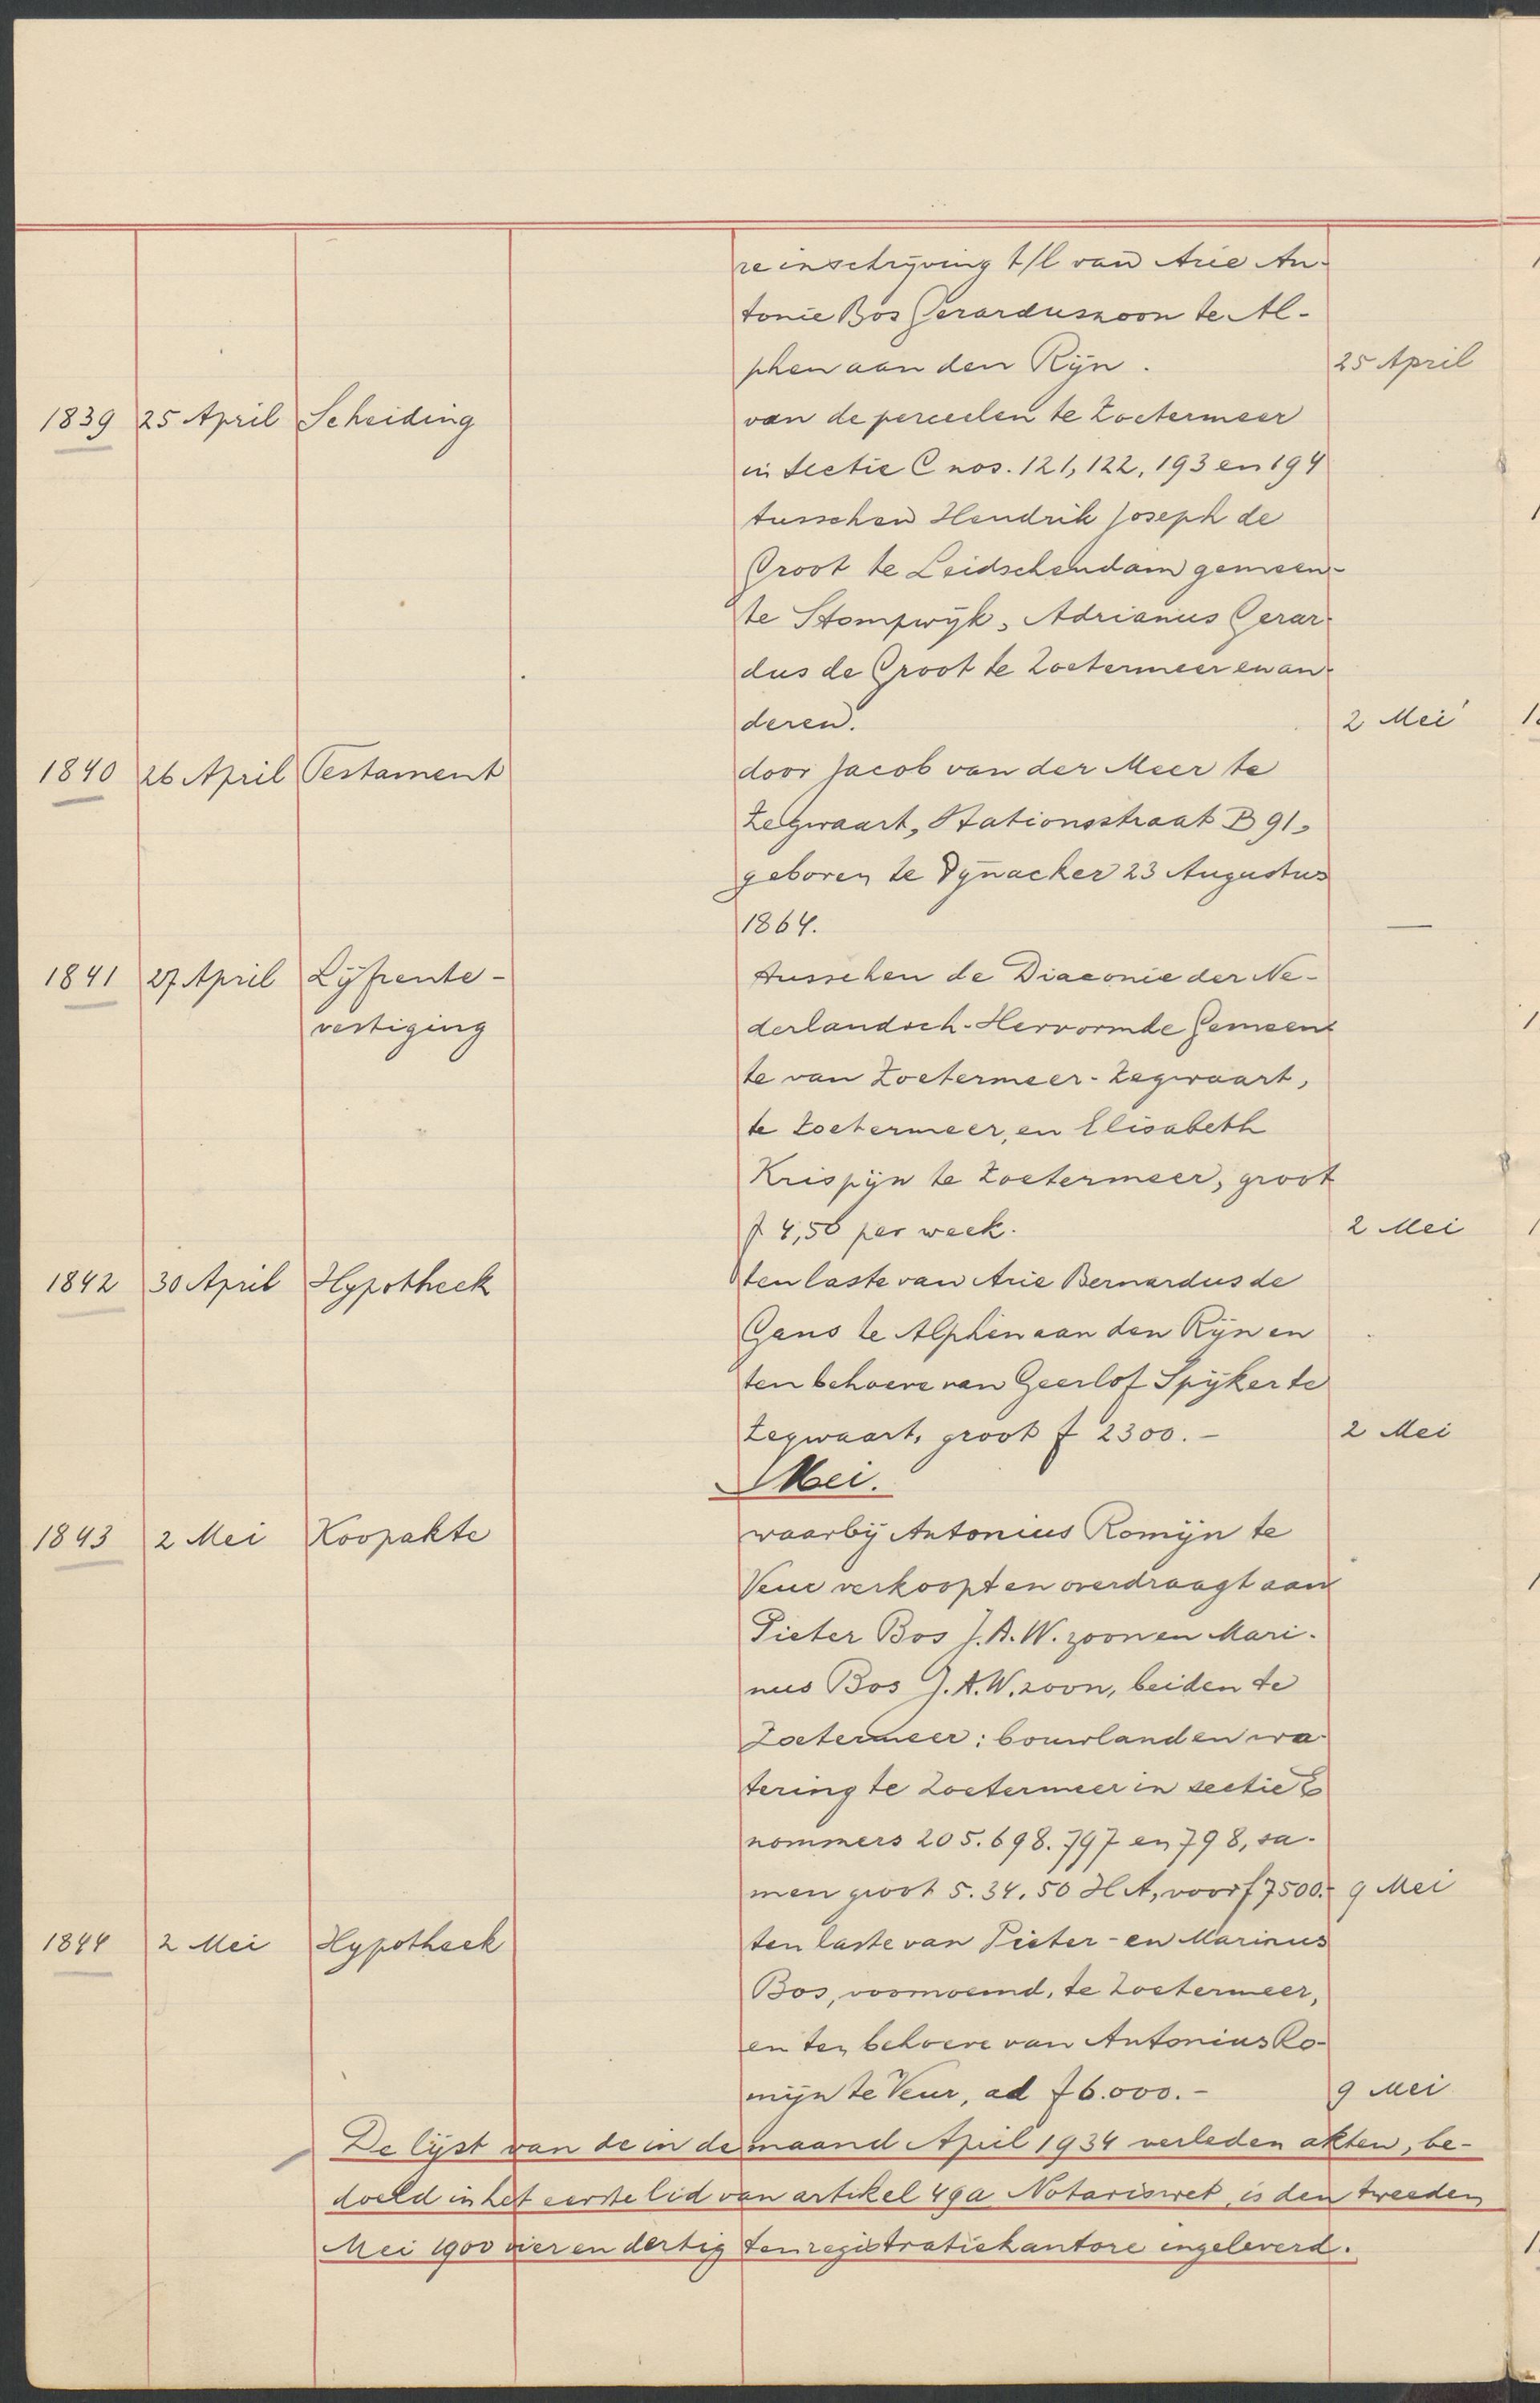 re inschrijving t/l van Arie An-
tonie Bos Gerarduszoon te Al-
phen aan den Rijn. 25 April
1839 25 April Scheiding van de perceelen te Zoetermeer
in Sectie C nos. 121, 122, 193 en 194
tusschen Hendrik Joseph de
Groot te Leidschendam gemeen-
te Stompwijk, Adrianus Gerar-
dus de Groot te Zoetermeer en an-
deren. 2 Mei
1840 26 April Testament door Jacob van der Meer te
Zegwaart, Stationsstraat B 91,
geboren te Pijnacker 23 Augustus
1864. —
1841 27 April Lijfrente- tusschen de Diaconie der Ne-
vestiging derlandsch-Hervormde Gemeen-
te van Zoetermeer-Zegwaart,
te Zoetermeer, en Elisabeth
Krispijn te Zoetermeer, groot
f 4,50 per week. 2 Mei
1842 30 April Hypotheek ten laste van Arie Bernardus de
Gans te Alphen aan den Rijn en
ten behoeve van Geerlof Spijker te
Zegwaart, groot f 2300.- 2 Mei
Mei.
1843 2 Mei Koopakte waarbij Antonius Romijn te
Veur verkoopt en overdraagt aan
Pieter Bos J.A.W. zoon en Mari-
nus Bos J.A.W. zoon, beiden te
Zoetermeer: bouwland en wa-
tering te Zoetermeer in sectie E
nommers 205. 698. 797 en 798, sa-
men groot 5.34.50 HA, voor f 7500.- 9 Mei
1844 2 Mei Hypotheek ten laste van Pieter- en Marinus
Bos, voornoemd, te Zoetermeer,
en ten behoeve van Antonius Ro-
mijn te Veur, ad f 6.000.- 9 Mei
De lijst van de in de maand April 1934 verleden akten, be-
doeld in het eerste lid van artikel 49a Notariswet, is den tweeden
Mei 1900 vier en dertig ten registratiekantore ingeleverd.